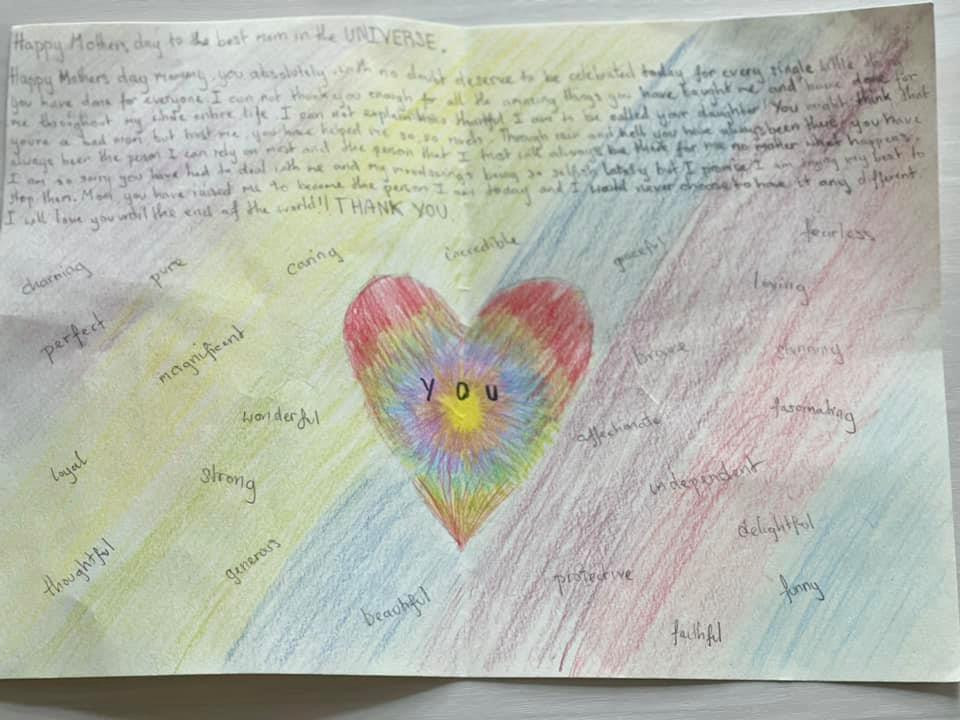 Happy Mothers day to the best mom in the UNIVERSE.
Happy Mothers day mommy, you absolutely with no doubt deserve to be celebrated today for every single little thing
you have done for everyone. I can not thank you enough for all the amazing things you have taught me and have done for
me throughout my whole entire life. I can not explain how thankful I am to be called your daughter! You might think that
you're a bad mom but trust me you have helped me so, so much. Through rain and hell you have always been there, you have
always been the person I can rely on most and the person that I trust will always be there for me no matter what happens.
I am so sorry you have had to deal with me and my mood swings being so selfish lately but I promise I am trying my best to
stop them. Mom, you have raised me to become the person I am today and I would never choose to have it any different.
I will love you until the end of the world!! THANK YOU
charming
pure
caring
incredible
graceful
fearless
loving
perfect
magnificent
brave
stunning
you
wonderful
affectionate
fascinating
loyal
strong
independent
delightful
thoughtful
generous
beautiful
protective
funny
faithful